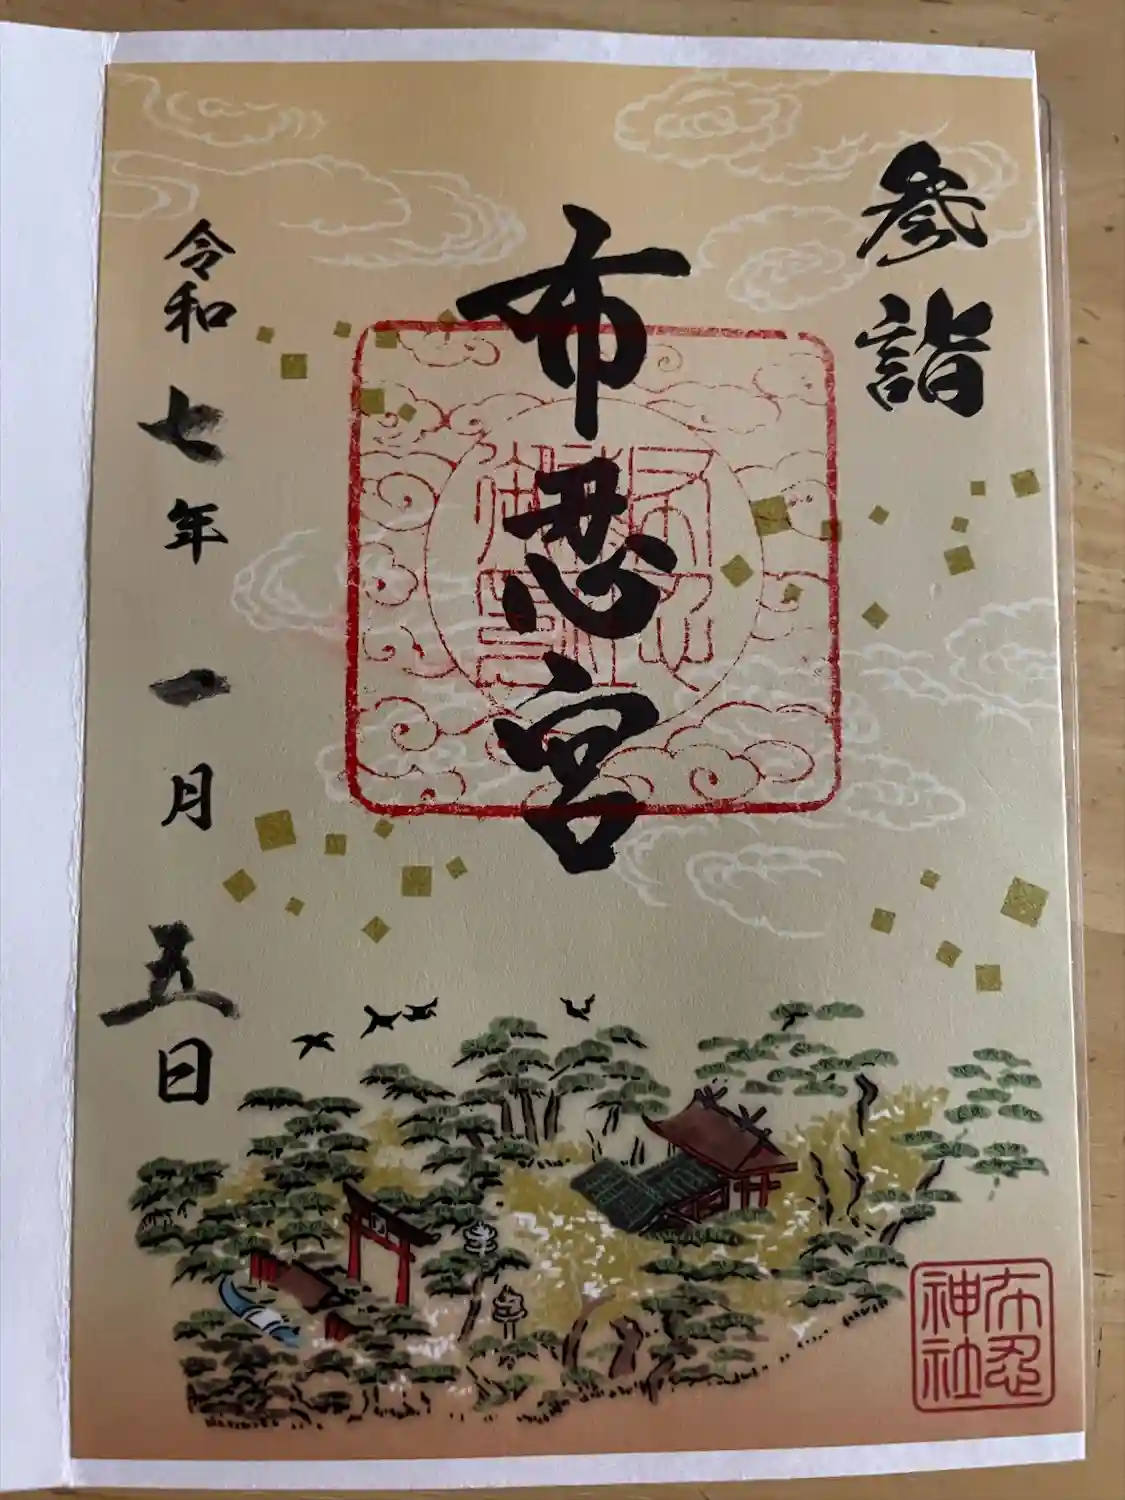 参詣
布忍宮
令和七年一月五日
布忍
神社